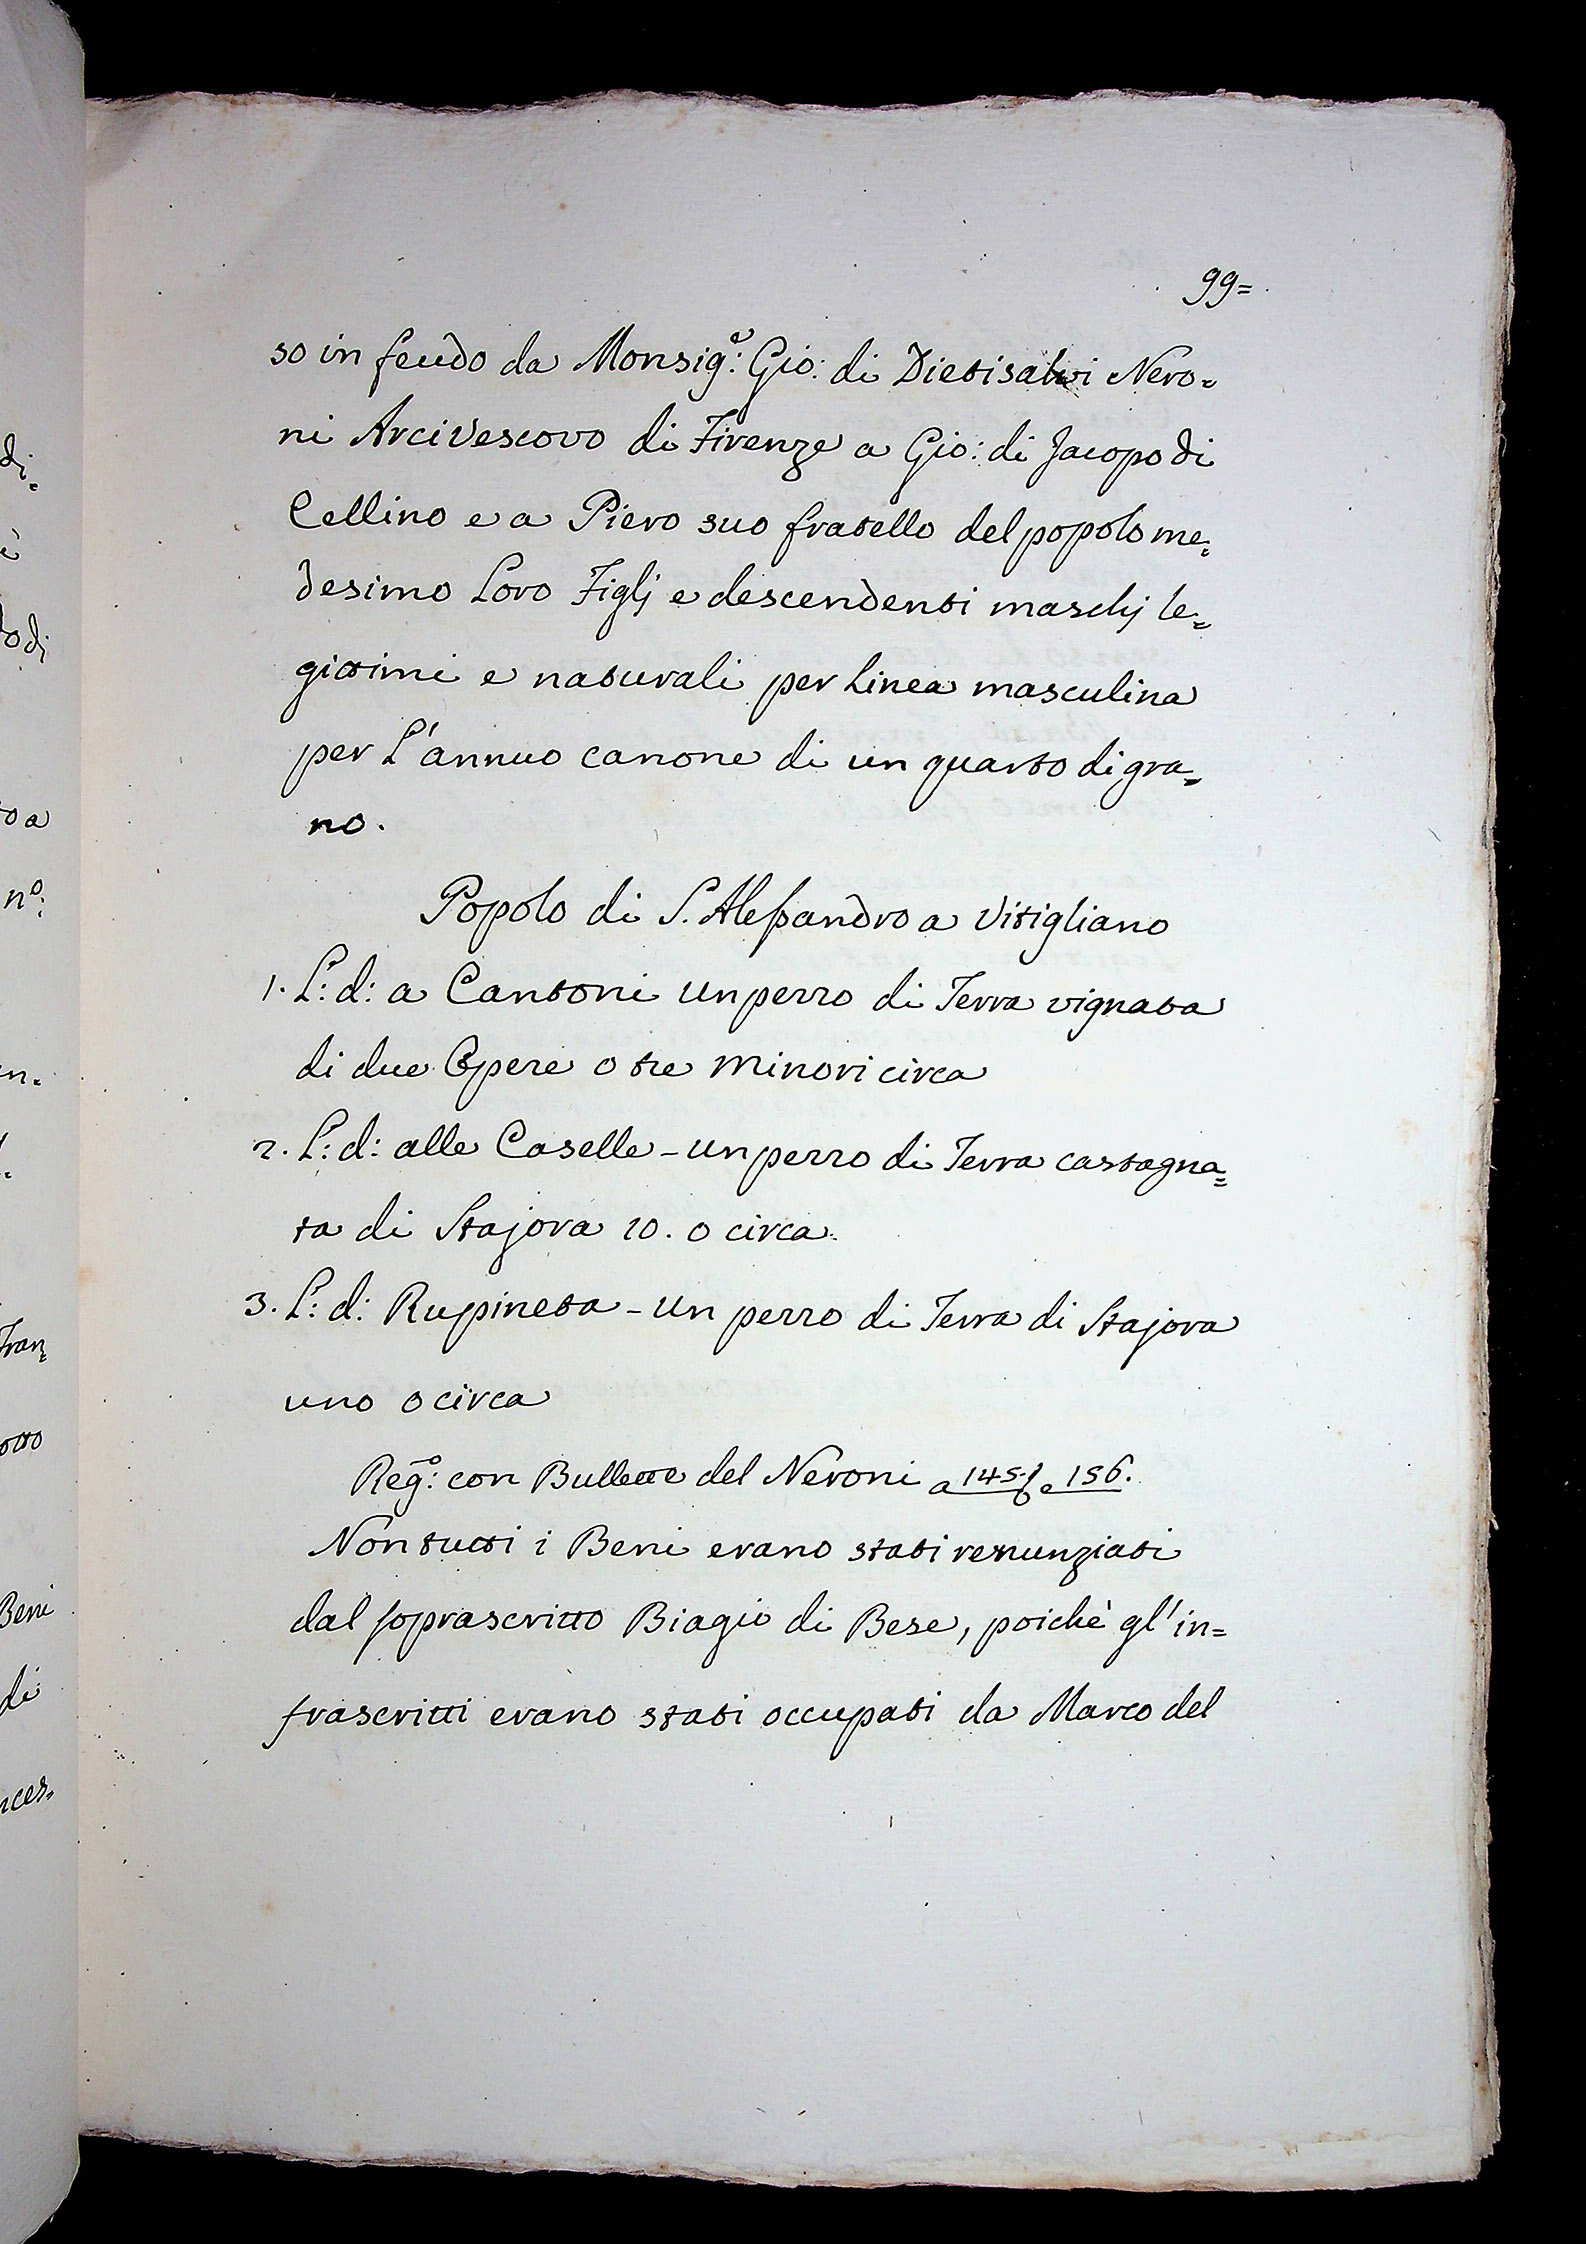 99=
so in feudo da Monsig.e: Gio: di Dietisalvi Nero=
ni Arcivescovo di Firenze a Gio: di Jacopo di
Cellino e a Piero suo fratello del popolo me=
desimo Loro Figlj e descendenti maschj le=
gittimi e naturali per Linea masculina
per L'annuo canone di un quarto di gra=
no.
Popolo di S. Alessandro a Vitigliano
1. L: d: a Cantoni un pezzo di Terra vignata
di due Opere o tre minori circa
2. L: d: alle Caselle - un pezzo di Terra castagna=
ta di Stajora 10. o circa.
3. L: d: Rupineta - un pezzo di Terra di Stajora
uno o circa
Reg.o: con Bullette del Neroni a 145. e 156.
Non tutti i Beni erano stati renunziati
dal soprascritto Biagio di Bese, poichè gl'in=
frascritti erano stati occupati da Marco del
di=
è
do di
to a
n.o:
en=
Fran=
otto
Beni
di
nces=